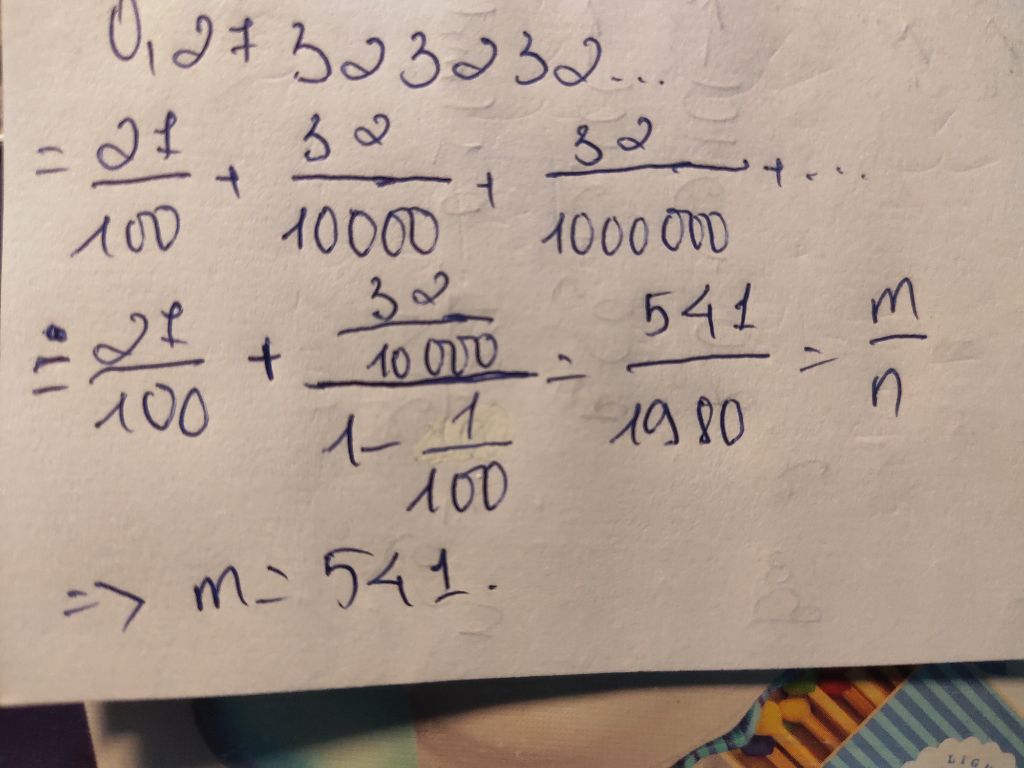 0,27323232...
= 27/100 + 32/10000 + 32/1000000 + ...
= 27/100 + (32/10000)/(1 - 1/100) = 541/1980 = m/n
=> m = 541.